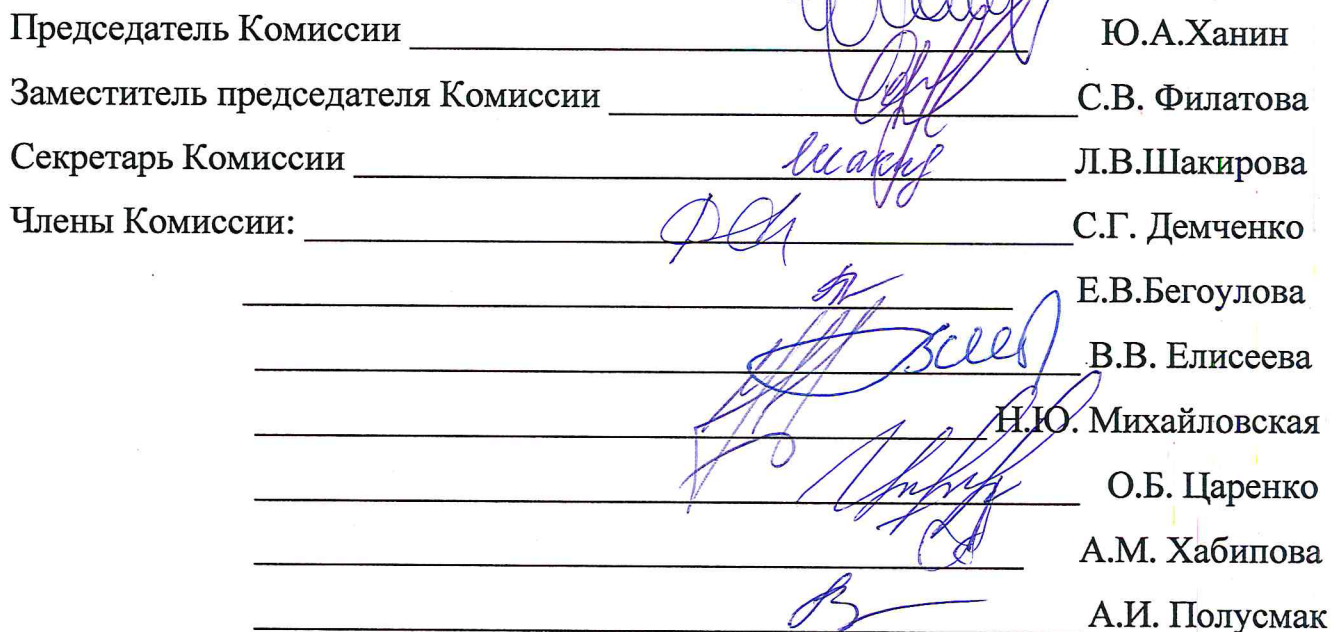 Председатель Комиссии Ю.А.Ханин
Заместитель председателя Комиссии С.В. Филатова
Секретарь Комиссии Л.В.Шакирова
Члены Комиссии: С.Г. Демченко
Е.В.Бегоулова
В.В. Елисеева
Н.Ю. Михайловская
О.Б. Царенко
А.М. Хабипова
А.И. Полусмак